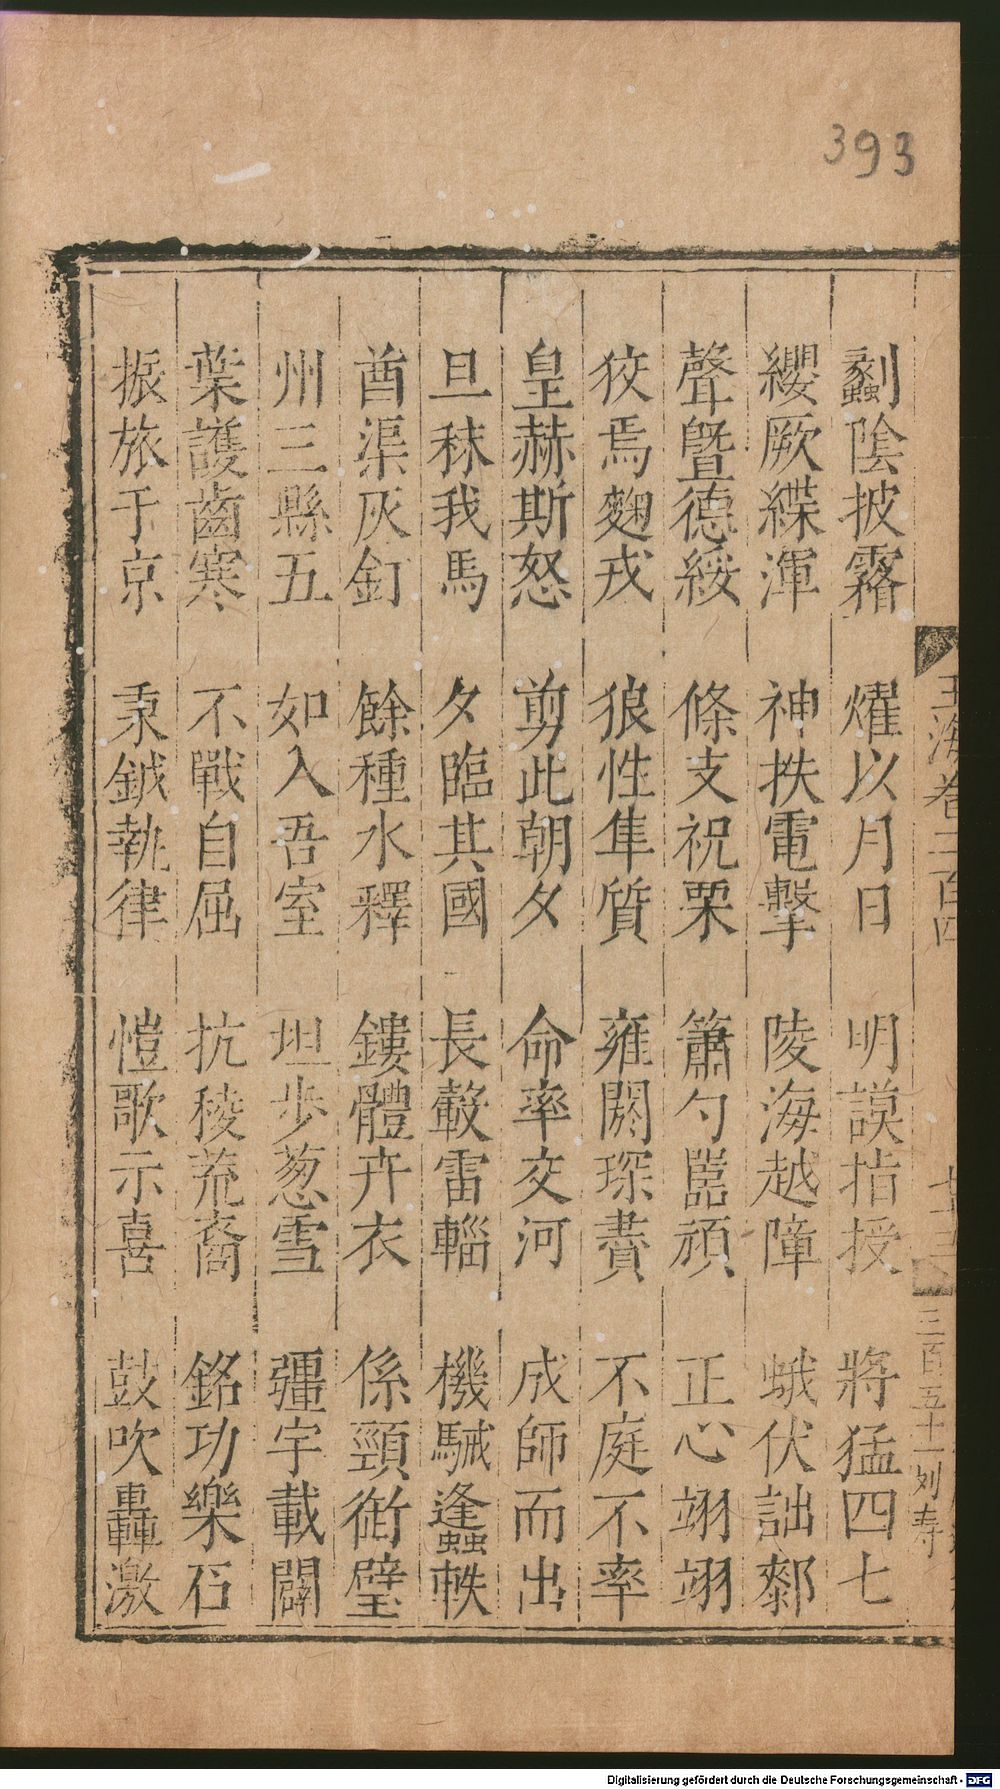 393
劙陰披霧 燿以月日 明謨指授 將猛四七
纓厥緤渾 神抶電擊 陵海越障 蛾伏詘
聲曁德綏 條支祝栗 簫勺嚚頑 正心翊翊
狡焉麴戎 狼性隼質 雍閼琛賮 不庭不率
皇赫斯怒 剪此朝夕 命率交河 成師而出
旦秣我馬 夕臨其國 長轂雷輜 機駴蠭軼
酋渠灰釘 餘種水釋 鏤體卉衣 係頸銜璧
州三縣五 如入吾室 坦步葱雪 疆宇載闢
葉護齒寒 不戰自屈 抗稜荒裔 銘功樂石
振旅于京 秉鉞執律 愷歌示喜 鼓吹轟激
玉海卷二百四 七十三 三百五十一 刘寿
Digitalisierung gefördert durch die Deutsche Forschungsgemeinschaft - DFG